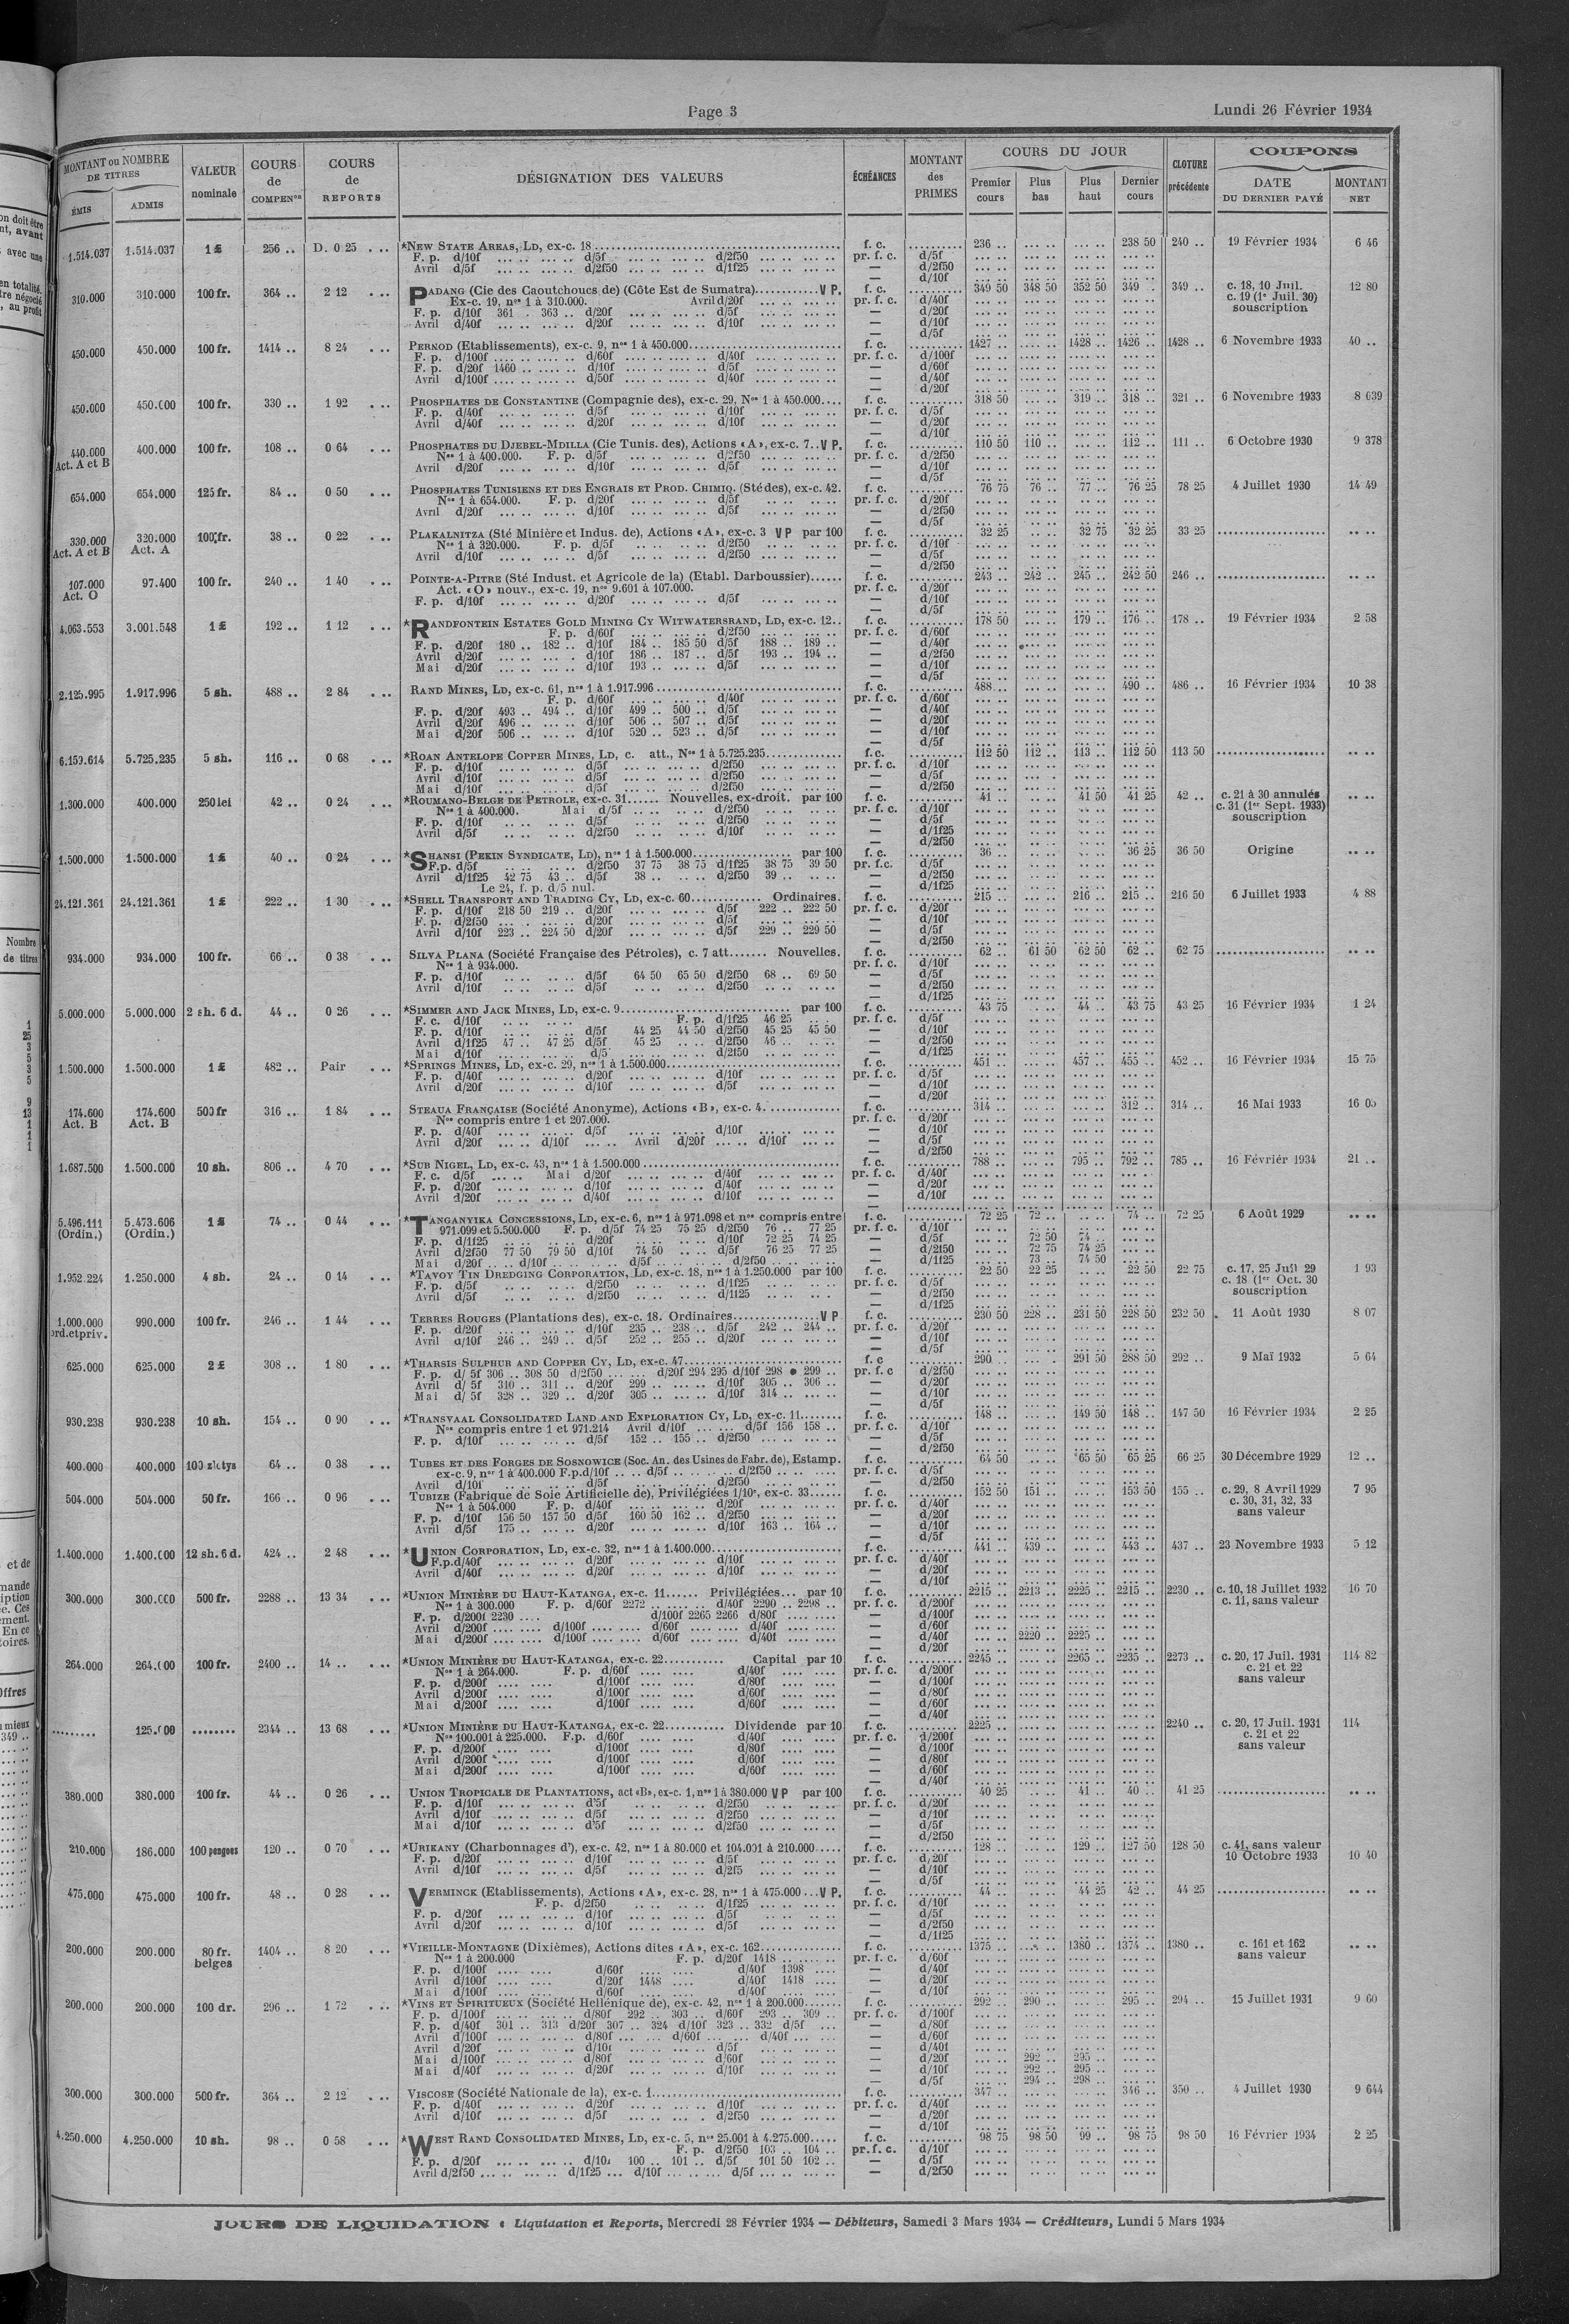 Page 3
Lundi 26 Février 1934
MONTANT ou NOMBRE DE TITRES
ÉMIS
ADMIS
VALEUR nominale
COURS de COMPENon
COURS de REPORTS
DÉSIGNATION DES VALEURS
ÉCHÉANCES
MONTANT des PRIMES
COURS DU JOUR
Premier cours
Plus bas
Plus haut
Dernier cours
CLOTURE précédente
COUPONS
DATE DU DERNIER PAYÉ
MONTANT NET
1.514.037 1.514.037 1 £ 256 .. D. 0 25 ... *NEW STATE AREAS, LD, ex-c. 18 f. c. 236 .. 238 50 240 .. 19 Février 1934 6 46
F. p. d/10f d/5f d/2f50 pr. f. c. d/5f
Avril d/5f d/2f50 d/1f25 — d/2f50
— d/10f
310.000 310.000 100 fr. 364 .. 2 12 ... PADANG (Cie des Caoutchoucs de) (Côte Est de Sumatra) V P. f. c. 349 50 348 50 352 50 349 .. 349 .. c. 18, 10 Juil. 12 80
Ex-c. 19, nos 1 à 310.000. Avril d/20f pr. f. c. d/40f c. 19 (1er Juil. 30)
F. p. d/10f 361 . 363 .. d/20f d/5f — d/20f souscription
Avril d/40f d/20f d/10f — d/10f
— d/5f
450.000 450.000 100 fr. 1414 .. 8 24 ... PERNOD (Etablissements), ex-c. 9, nos 1 à 450.000 f. c. 1427 .. 1428 .. 1426 .. 1428 .. 6 Novembre 1933 40 ..
F. p. d/100f d/60f d/40f pr. f. c. d/100f
F. p. d/20f 1460 .. d/10f d/5f — d/60f
Avril d/100f d/50f d/40f — d/40f
— d/20f
450.000 450.000 100 fr. 330 .. 1 92 ... PHOSPHATES DE CONSTANTINE (Compagnie des), ex-c. 29, Nos 1 à 450.000 f. c. 318 50 319 .. 318 .. 321 .. 6 Novembre 1933 8 639
F. p. d/40f d/5f d/10f pr. f. c. d/5f
Avril d/40f d/20f d/10f — d/20f
— d/10f
440.000 Act. A et B 400.000 100 fr. 108 .. 0 64 ... PHOSPHATES DU DJEBEL-MDILLA (Cie Tunis. des), Actions «A», ex-c. 7..V P. f. c. 110 50 110 .. 112 .. 111 .. 6 Octobre 1930 9 378
Nos 1 à 400.000. F. p. d/5f d/2f50 pr. f. c. d/2f50
Avril d/20f d/10f d/5f — d/10f
— d/5f
654.000 654.000 125 fr. 84 .. 0 50 ... PHOSPHATES TUNISIENS ET DES ENGRAIS ET PROD. CHIMIQ. (Sté des), ex-c. 42. f. c. 76 75 76 .. 77 .. 76 25 78 25 4 Juillet 1930 14 49
Nos 1 à 654.000. F. p. d/20f d/5f pr. f. c. d/20f
Avril d/20f d/10f d/5f — d/2f50
— d/5f
330.000 Act. A et B 320.000 Act. A 100 fr. 38 .. 0 22 ... PLAKALNITZA (Sté Minière et Indus. de), Actions «A», ex-c. 3 V P par 100 f. c. 32 25 32 75 32 25 33 25
Nos 1 à 320.000. F. p. d/5f d/2f50 pr. f. c. d/10f
Avril d/10f d/5f d/2f50 — d/5f
— d/2f50
107.000 Act. O 97.400 100 fr. 240 .. 1 40 ... POINTE-A-PITRE (Sté Indust. et Agricole de la) (Etabl. Darboussier) f. c. 243 .. 242 .. 245 .. 242 50 246 ..
Act. «O» nouv., ex-c. 19, nos 9.601 à 107.000. pr. f. c. d/20f
F. p. d/10f d/20f d/5f — d/10f
— d/5f
4.063.553 3.001.548 1 £ 192 .. 1 12 ... *RANDFONTEIN ESTATES GOLD MINING CY WITWATERSRAND, LD, ex-c. 12.. f. c. 178 50 179 .. 176 .. 178 .. 19 Février 1934 2 58
F. p. d/60f d/2f50 pr. f. c. d/60f
F. p. d/20f 180 .. 182 .. d/10f 184 .. 185 50 d/5f 188 .. 189 .. — d/40f
Avril d/20f d/10f 186 .. 187 .. d/5f 193 .. 194 .. — d/2f50
Mai d/20f d/10f 193 .. d/5f — d/10f
— d/5f
2.125.995 1.917.996 5 sh. 488 .. 2 84 ... RAND MINES, LD, ex-c. 61, nos 1 à 1.917.996 f. c. 488 .. 490 .. 486 .. 16 Février 1934 10 38
F. p. d/60f d/40f pr. f. c. d/60f
F. p. d/20f 493 .. 494 .. d/10f 499 .. 500 .. d/5f — d/40f
Avril d/20f 496 .. d/10f 506 .. 507 .. d/5f — d/20f
Mai d/20f 506 .. d/10f 520 .. 523 .. d/5f — d/10f
— d/5f
6.159.614 5.725.235 5 sh. 116 .. 0 68 ... *ROAN ANTELOPE COPPER MINES, LD, c. att., Nos 1 à 5.725.235 f. c. 112 50 112 .. 113 .. 112 50 113 50
F. p. d/10f d/5f d/2f50 pr. f. c. d/10f
Avril d/10f d/5f d/2f50 — d/5f
Mai d/10f d/5f d/2f50 — d/2f50
1.300.000 400.000 250 lei 42 .. 0 24 ... *ROUMANO-BELGE DE PETROLE, ex-c. 31 Nouvelles, ex-droit. par 100 f. c. 41 .. 41 50 41 25 42 .. c. 21 à 30 annulés
Nos 1 à 400.000. Mai d/5f d/2f50 pr. f. c. d/10f c. 31 (1er Sept. 1933)
F. p. d/10f d/5f d/2f50 — d/5f souscription
Avril d/5f d/2f50 d/10f — d/1f25
— d/2f50
1.500.000 1.500.000 1 £ 40 .. 0 24 ... *SHANSI (PEKIN SYNDICATE, LD), nos 1 à 1.500.000 par 100 f. c. 36 .. 36 25 36 50 Origine
F.p. d/5f d/2f50 37 75 38 75 d/1f25 38 75 39 50 pr. f.c. d/5f
Avril d/1f25 42 75 43 .. d/5f 38 .. d/2f50 39 .. — d/2f50
Le 24, f. p. d/5 nul. — d/1f25
24.121.361 24.121.361 1 £ 222 .. 1 30 ... *SHELL TRANSPORT AND TRADING CY, LD, ex-c. 60 Ordinaires. f. c. 215 .. 216 .. 215 .. 216 50 6 Juillet 1933 4 88
F. p. d/10f 218 50 219 .. d/20f d/5f 222 .. 222 50 pr. f. c. d/20f
F. p. d/2f50 d/20f d/5f — d/10f
Avril d/10f 223 .. 224 50 d/20f d/5f 229 .. 229 50 — d/5f
— d/2f50
934.000 934.000 100 fr. 66 .. 0 38 ... SILVA PLANA (Société Française des Pétroles), c. 7 att Nouvelles. f. c. 62 .. 61 50 62 50 62 .. 62 75
Nos 1 à 934.000. pr. f. c. d/10f
F. p. d/10f d/5f 64 50 65 50 d/2f50 68 .. 69 50 — d/5f
Avril d/10f d/5f d/2f50 — d/2f50
— d/1f25
5.000.000 5.000.000 2 sh. 6 d. 44 .. 0 26 ... *SIMMER AND JACK MINES, LD, ex-c. 9 par 100 f. c. 43 75 44 .. 43 75 43 25 16 Février 1934 1 24
F. c. d/10f F. p. d/1f25 46 25 pr. f. c. d/5f
F. p. d/10f d/5f 44 25 44 50 d/2f50 45 25 45 50 — d/10f
Avril d/1f25 47 .. 47 25 d/5f 45 25 d/2f50 46 .. — d/2f50
Mai d/10f d/5 d/2f50 — d/1f25
1.500.000 1.500.000 1 £ 482 .. Pair ... *SPRINGS MINES, LD, ex-c. 29, nos 1 à 1.500.000 f. c. 451 .. 457 .. 455 .. 452 .. 16 Février 1934 15 75
F. p. d/40f d/20f d/10f pr. f. c. d/5f
Avril d/20f d/10f d/5f — d/10f
— d/20f
174.600 Act. B 174.600 Act. B 500 fr 316 .. 1 84 ... STEAUA FRANÇAISE (Société Anonyme), Actions «B», ex-c. 4. f. c. 314 .. 312 .. 314 .. 16 Mai 1933
Nos compris entre 1 et 207.000. pr. f. c. d/20f
F. p. d/40f d/5f d/10f — d/10f
Avril d/20f d/10f Avril d/20f d/10f — d/5f
— d/2f50
1.687.500 1.500.000 10 sh. 806 .. 4 70 ... *SUB NIGEL, LD, ex-c. 43, nos 1 à 1.500.000 f. c. 788 .. 795 .. 792 .. 785 .. 16 Février 1934 21 ..
F. c. d/5f Mai d/20f d/40f pr. f. c. d/40f
F. p. d/20f d/10f d/40f — d/20f
Avril d/20f d/40f d/10f — d/10f
5.496.111 (Ordin.) 5.473.606 (Ordin.) 1 £ 74 .. 0 44 ... *TANGANYIKA CONCESSIONS, LD, ex-c. 6, nos 1 à 971.098 et nos compris entre f. c. 72 25 72 .. 74 .. 72 25 6 Août 1929
971.099 et 5.500.000 F. p. d/5f 74 25 75 25 d/2f50 76 .. 77 25 pr. f. c. d/10f
F. p. d/1f25 d/20f d/10f 72 25 74 25 — d/5f 72 50 74 ..
Avril d/2f50 77 50 79 50 d/10f 74 50 d/5f 76 25 77 25 — d/2f50 72 75 74 25
Mai d/20f d/10f d/5f d/2f50 — d/1f25 73 .. 74 50
1.952.224 1.250.000 4 sh. 24 .. 0 14 ... *TAVOY TIN DREDGING CORPORATION, LD, ex-c. 18, nos 1 à 1.250.000 par 100 f. c. 22 50 22 25 22 50 22 75 c. 17, 25 Juil 29 1 93
F. p. d/5f d/2f50 d/1f25 pr. f. c. d/5f c. 18 (1er Oct. 30
Avril d/5f d/2f50 d/1f25 — d/2f50 souscription
— d/1f25
1.000.000 ord.et priv. 990.000 100 fr. 246 .. 1 44 ... TERRES ROUGES (Plantations des), ex-c. 18. Ordinaires V P f. c. 230 50 228 .. 231 50 228 50 232 50 11 Août 1930 8 07
F. p. d/20f d/10f 235 .. 238 .. d/5f 242 .. 244 .. pr. f. c. d/20f
Avril d/10f 246 .. 249 .. d/5f 252 .. 255 .. d/20f — d/10f
— d/5f
625.000 625.000 2 £ 308 .. 1 80 ... *THARSIS SULPHUR AND COPPER CY, LD, ex-c. 47 f. c 290 .. 291 50 288 50 292 .. 9 Mai 1932 5 64
F. p. d/ 5f 306 .. 308 50 d/2f50 d/20f 294 295 d/10f 298 • 299 .. pr. f. c d/2f50
Avril d/ 5f 310 .. 311 .. d/20f 299 .. d/10f 305 .. 306 .. — d/20f
Mai d/ 5f 328 .. 329 .. d/20f 305 .. d/10f 314 .. — d/10f
— d/5f
930.238 930.238 10 sh. 154 .. 0 90 ... *TRANSVAAL CONSOLIDATED LAND AND EXPLORATION CY, LD, ex-c. 11 f. c. 148 .. 149 50 148 .. 147 50 16 Février 1934 2 25
Nos compris entre 1 et 971.214 Avril d/10f d/5f 156 158 .. pr. f. c. d/10f
F. p. d/10f d/5f 152 .. 155 .. d/2f50 — d/5f
— d/2f50
400.000 400.000 100 zlotys 64 .. 0 38 ... TUBES ET DES FORGES DE SOSNOWICE (Soc. An. des Usines de Fabr. de), Estamp. f. c. 64 50 65 50 65 25 66 25 30 Décembre 1929 12 ..
ex-c. 9, nos 1 à 400.000 F.p. d/10f d/5f d/2f50 pr. f. c. d/5f
Avril d/10f d/5f d/2f50 — d/2f50
504.000 504.000 50 fr. 166 .. 0 96 ... TUBIZE (Fabrique de Soie Artificielle de), Privilégiées 1/10e, ex-c. 33 f. c. 152 50 151 .. 153 50 155 .. c. 29, 8 Avril 1929 7 95
Nos 1 à 504.000 F. p. d/40f d/20f pr. f. c. d/40f c. 30, 31, 32, 33
F. p. d/10f 156 50 157 50 d/5f 160 50 162 .. d/2f50 — d/20f sans valeur
Avril d/5f 175 .. d/20f d/10f 163 .. 164 .. — d/10f
— d/5f
1.400.000 1.400.000 12 sh. 6 d. 424 .. 2 48 ... *UNION CORPORATION, LD, ex-c. 32, nos 1 à 1.400.000 f. c. 441 .. 439 .. 443 .. 437 .. 23 Novembre 1933 5 12
F.p. d/40f d/20f d/10f pr. f. c. d/40f
Avril d/40f d/20f d/10f — d/20f
— d/10f
300.000 300.000 500 fr. 2288 .. 13 34 ... *UNION MINIÈRE DU HAUT-KATANGA, ex-c. 11 Privilégiées par 10 f. c. 2215 .. 2213 .. 2225 .. 2215 .. 2230 .. c. 10, 18 Juillet 1932 16 70
Nos 1 à 300.000 F. p. d/60f 2272 .. d/40f 2290 .. 2298 .. pr. f. c. d/200f c. 11, sans valeur
F. p. d/200f 2230 d/100f 2265 2266 d/80f — d/100f
Avril d/200f d/100f d/60f d/40f — d/60f
Mai d/200f d/100f d/60f d/40f — d/40f 2220 .. 2225 ..
— d/20f
264.000 264.000 100 fr. 2400 .. 14 .. ... *UNION MINIÈRE DU HAUT-KATANGA, ex-c. 22 Capital par 10 f. c. 2245 .. 2265 .. 2235 .. 2273 .. c. 20, 17 Juil. 1931 114 82
Nos 1 à 264.000. F. p. d/60f d/40f pr. f. c. d/200f c. 21 et 22
F. p. d/200f d/100f d/80f — d/100f sans valeur
Avril d/200f d/100f d/60f — d/80f
Mai d/200f d/100f d/60f — d/60f
— d/40f
125.000 2344 .. 13 68 ... *UNION MINIÈRE DU HAUT-KATANGA, ex-c. 22 Dividende par 10 f. c. 2225 .. 2240 .. c. 20, 17 Juil. 1931 114
Nos 100.001 à 225.000. F.p. d/60f d/40f pr. f. c. d/200f c. 21 et 22
F. p. d/200f d/100f d/80f — d/100f sans valeur
Avril d/200f d/100f d/60f — d/80f
Mai d/200f d/100f d/60f — d/60f
— d/40f
380.000 380.000 100 fr. 44 .. 0 26 ... UNION TROPICALE DE PLANTATIONS, act «B», ex-c. 1, nos 1 à 380.000 V P par 100 f. c. 40 25 41 .. 40 .. 41 25
F. p. d/10f d/5f d/2f50 pr. f. c. d/20f
Avril d/10f d/5f d/2f50 — d/10f
Mai d/10f d/5f d/2f50 — d/5f
— d/2f50
210.000 186.000 100 pengoes 120 .. 0 70 ... *URIKANY (Charbonnages d'), ex-c. 42, nos 1 à 80.000 et 104.031 à 210.000 f. c. 128 .. 129 .. 127 50 128 50 c. 41, sans valeur
F. p. d/20f d/10f d/5f pr. f. c. d/20f 10 Octobre 1933 10 40
Avril d/10f d/5f d/2f5 — d/10f
— d/5f
475.000 475.000 100 fr. 48 .. 0 28 ... VERMINCK (Etablissements), Actions «A», ex-c. 28, nos 1 à 475.000 V P. f. c. 44 .. 44 25 42 .. 44 25
F. p. d/2f50 d/1f25 pr. f. c. d/10f
F. p. d/20f d/10f d/5f — d/5f
Avril d/20f d/10f d/5f — d/2f50
— d/1f25
200.000 200.000 80 fr. belges 1404 .. 8 20 ... *VIEILLE-MONTAGNE (Dixièmes), Actions dites «A», ex-c. 162 f. c. 1375 .. 1380 .. 1374 .. 1380 .. c. 161 et 162
Nos 1 à 200.000 F. p. d/20f 1418 pr. f. c. d/60f sans valeur
F. p. d/100f d/60f d/40f 1398 — d/40f
Avril d/100f d/20f 1448 d/40f 1418 — d/20f
Mai d/100f d/60f d/40f — d/10f
200.000 200.000 100 dr. 296 .. 1 72 ... *VINS ET SPIRITUEUX (Société Hellénique de), ex-c. 42, nos 1 à 200.000 f. c. 292 .. 290 .. 295 .. 294 .. 15 Juillet 1931 9 60
F. p. d/100f d/80f 292 .. 303 .. d/60f 293 .. 309 .. pr. f. c. d/100f
F. p. d/40f 301 .. 313 d/20f 307 .. 324 d/10f 323 .. 332 d/5f — d/80f
Avril d/100f d/80f d/60f d/40f — d/60f
Avril d/20f d/10f d/5f — d/40f
Mai d/100f d/80f d/60f — d/20f 292 .. 295 ..
Mai d/40f d/20f d/10f — d/10f 292 .. 295 ..
— d/5f 294 .. 298 ..
300.000 300.000 500 fr. 364 .. 2 12 ... VISCOSE (Société Nationale de la), ex-c. 1 f. c. 347 .. 346 .. 350 .. 4 Juillet 1930 9 644
F. p. d/40f d/20f d/10f pr. f. c. d/40f
Avril d/10f d/5f d/2f50 — d/20f
— d/10f
4.250.000 4.250.000 10 sh. 98 .. 0 58 ... *WEST RAND CONSOLIDATED MINES, LD, ex-c. 5, nos 25.001 à 4.275.000 f. c. 98 75 98 50 99 .. 98 75 98 50 16 Février 1934 2 25
F. p. d/2f50 103 .. 104 .. pr. f. c. d/10f
F. p. d/20f d/10f 100 .. 101 .. d/5f 101 50 102 .. — d/5f
Avril d/2f50 d/1f25 d/10f d/5f — d/2f50
JOURS DE LIQUIDATION : Liquidation et Reports, Mercredi 28 Février 1934 — Débiteurs, Samedi 3 Mars 1934 — Créditeurs, Lundi 5 Mars 1934